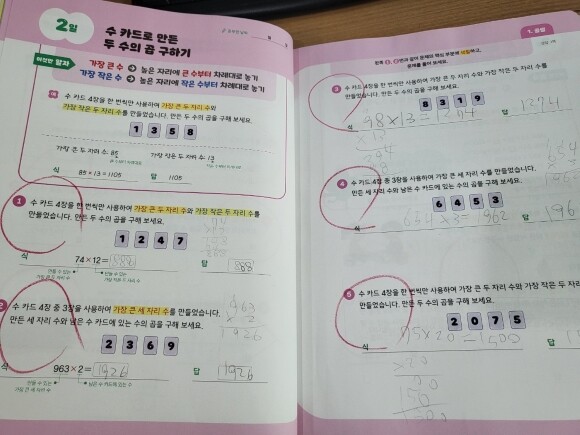 2일
수 카드로 만든
두 수의 곱 구하기
이것만 알자
가장 큰 수 → 높은 자리에 큰 수부터 차례대로 놓기
가장 작은 수 → 높은 자리에 작은 수부터 차례대로 놓기
예 수 카드 4장을 한 번씩만 사용하여 가장 큰 두 자리 수와
가장 작은 두 자리 수를 만들었습니다. 만든 두 수의 곱을 구해 보세요.
1 3 5 8
가장 큰 두 자리 수: 85 가장 작은 두 자리 수: 13
식 85 × 13 = 1105 답 1105
1 수 카드 4장을 한 번씩만 사용하여 가장 큰 두 자리 수와 가장 작은 두 자리 수를
만들었습니다. 만든 두 수의 곱을 구해 보세요.
1 2 4 7
식 74×12= 888 답 888
만들 수 있는 만들 수 있는
가장 큰 두 자리 수 가장 작은 두 자리 수
2 수 카드 4장 중 3장을 사용하여 가장 큰 세 자리 수를 만들었습니다.
만든 세 자리 수와 남은 수 카드에 있는 수의 곱을 구해 보세요.
963
× 2
1926
2 3 6 9
식 963×2= 1926 답 1926
만들 수 있는 남은 수 카드에 있는 수
가장 큰 세 자리 수
1. 곱셈
3 수 카드 4장을 한 번씩만 사용하여 가장 큰 두 자리 수와 가장 작은 두 자리 수를
만들었습니다. 만든 두 수의 곱을 구해 보세요.
8 3 1 9
식 98×13=1274 답 1274
4 수 카드 4장 중 3장을 사용하여 가장 큰 세 자리 수를 만들었습니다.
만든 세 자리 수와 남은 수 카드에 있는 수의 곱을 구해 보세요.
6 4 5 3
식 654×3=1962 답 196
5 수 카드 4장을 한 번씩만 사용하여 가장 큰 두 자리 수와 가장 작은 두 자리
수를 만들었습니다. 만든 두 수의 곱을 구해 보세요.
2 0 7 5
식 75×20=1500 답
×20
150